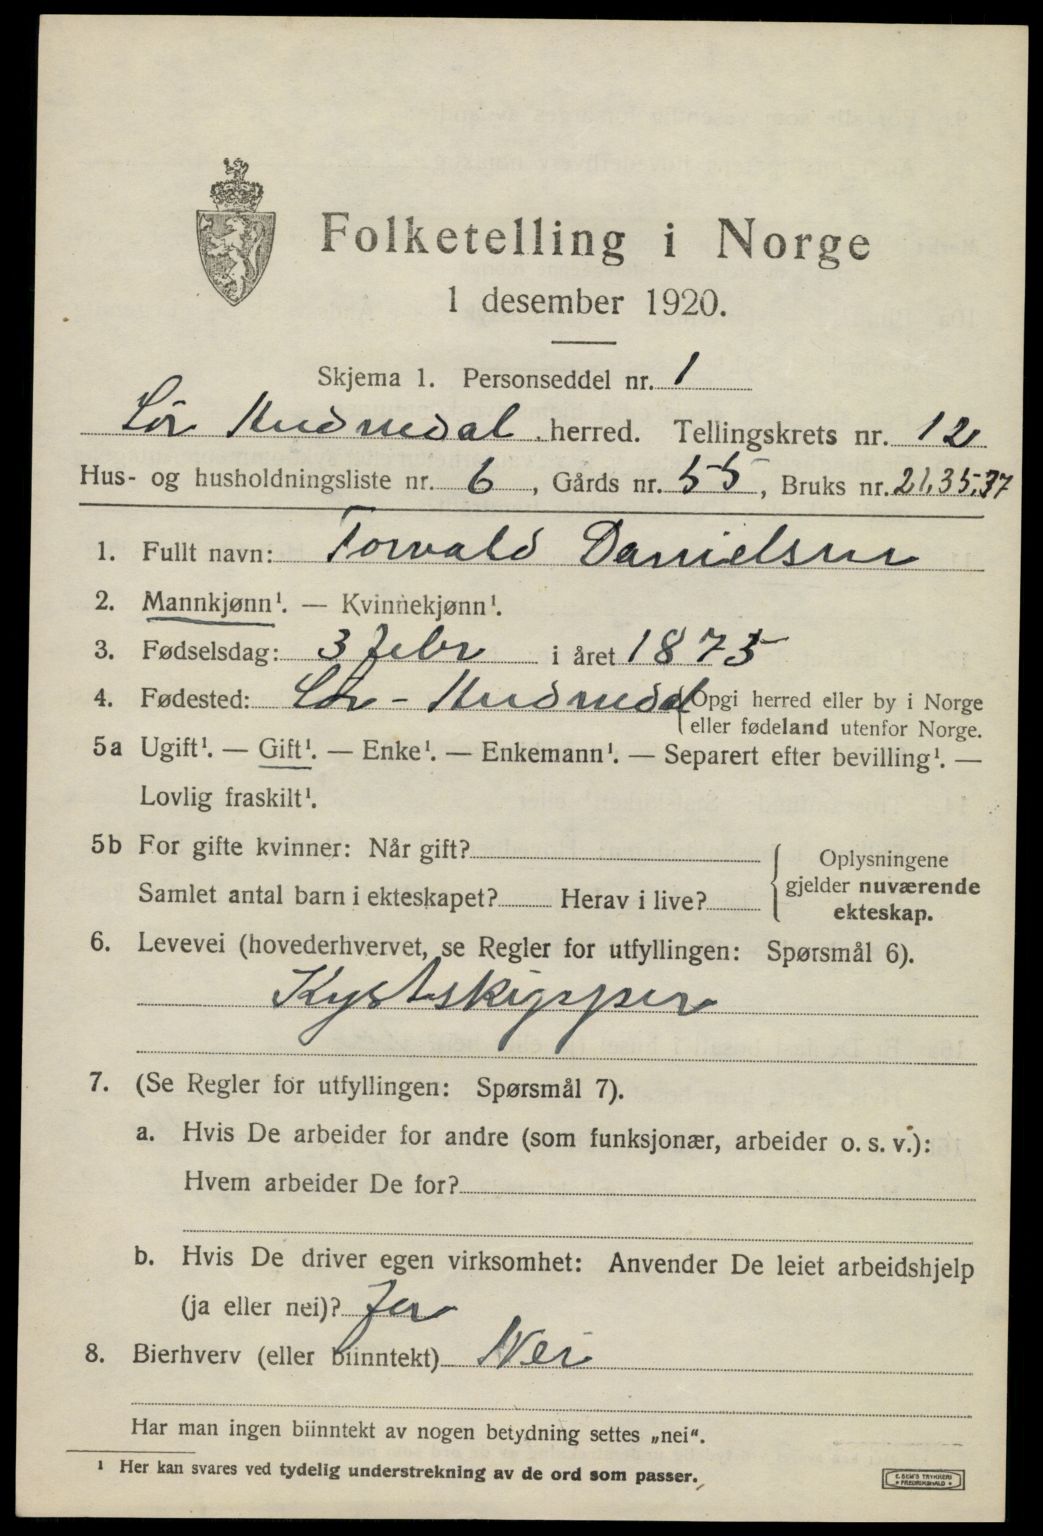 Folketelling i Norge
1 desember 1920.
Skjema 1. Personseddel nr. 1
Sør Audnedal herred. Tellingskrets nr. 12
Hus- og husholdningsliste nr. 6, Gårds nr. 55, Bruks nr. 21,35,37
1. Fullt navn: Torvald Danielsen
2. Mannkjønn¹. — Kvinnekjønn¹.
3. Fødselsdag: 3 febr i året 1875
4. Fødested: Sør - Audnedal {Opgi herred eller by i Norge
eller fødeland utenfor Norge.
5a Ugift¹. — Gift¹. — Enke¹. — Enkemann¹. — Separert efter bevilling¹. —
Lovlig fraskilt¹.
5b For gifte kvinner: Når gift?
Samlet antal barn i ekteskapet? Herav i live?
{Oplysningene
gjelder nuværende
ekteskap.
6. Levevei (hovederhvervet, se Regler for utfyllingen: Spørsmål 6).
Kystskipper
7. (Se Regler for utfyllingen: Spørsmål 7).
a. Hvis De arbeider for andre (som funksjonær, arbeider o. s. v.):
Hvem arbeider De for?
b. Hvis De driver egen virksomhet: Anvender De leiet arbeidshjelp
(ja eller nei)? Ja
8. Bierhverv (eller biinntekt) Nei
Har man ingen biinntekt av nogen betydning settes „nei“.
¹ Her kan svares ved tydelig understrekning av de ord som passer.
E. SEM'S TRYKKERI
FREDRIKSHALD